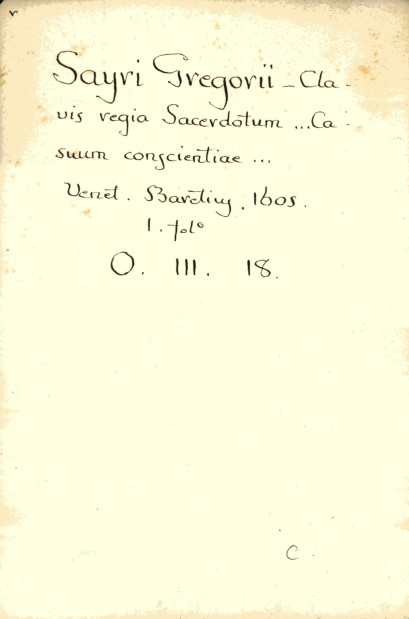 Sayri Gregorii - Cla-
vis regia Sacerdotum ... Ca-
suum conscientiae ...
Venet. Baretius. 1605.
1. folº
O. III. 18.
C.